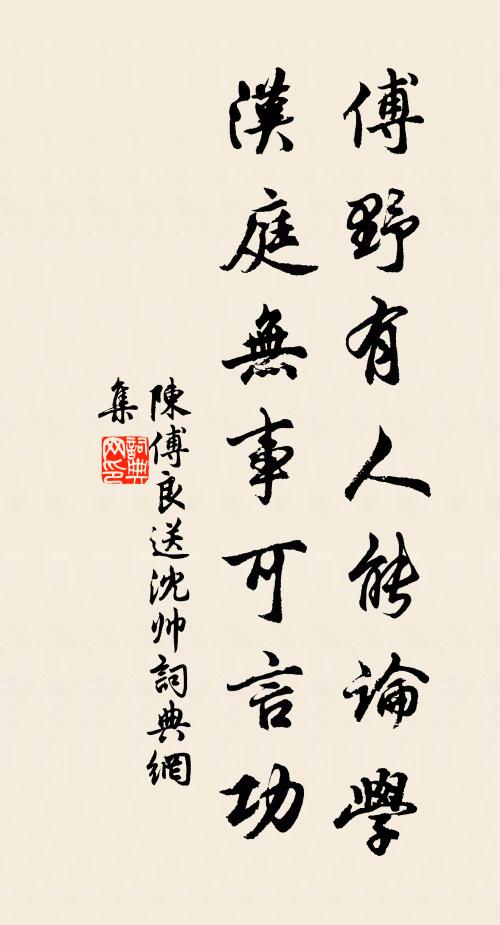 傅野有人能論學
漢庭無事可言功
陳傅良送沈帅詞典網
集
詞典網印